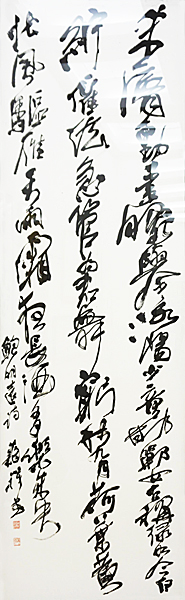 朱脣動素腕舉洛陽少童邯鄲女古稱淥水今白
紵催絃急管為君舞窮秋九月荷葉黃
北風驅雁天雨霜夜長酒多樂未央
鮑明遠詩